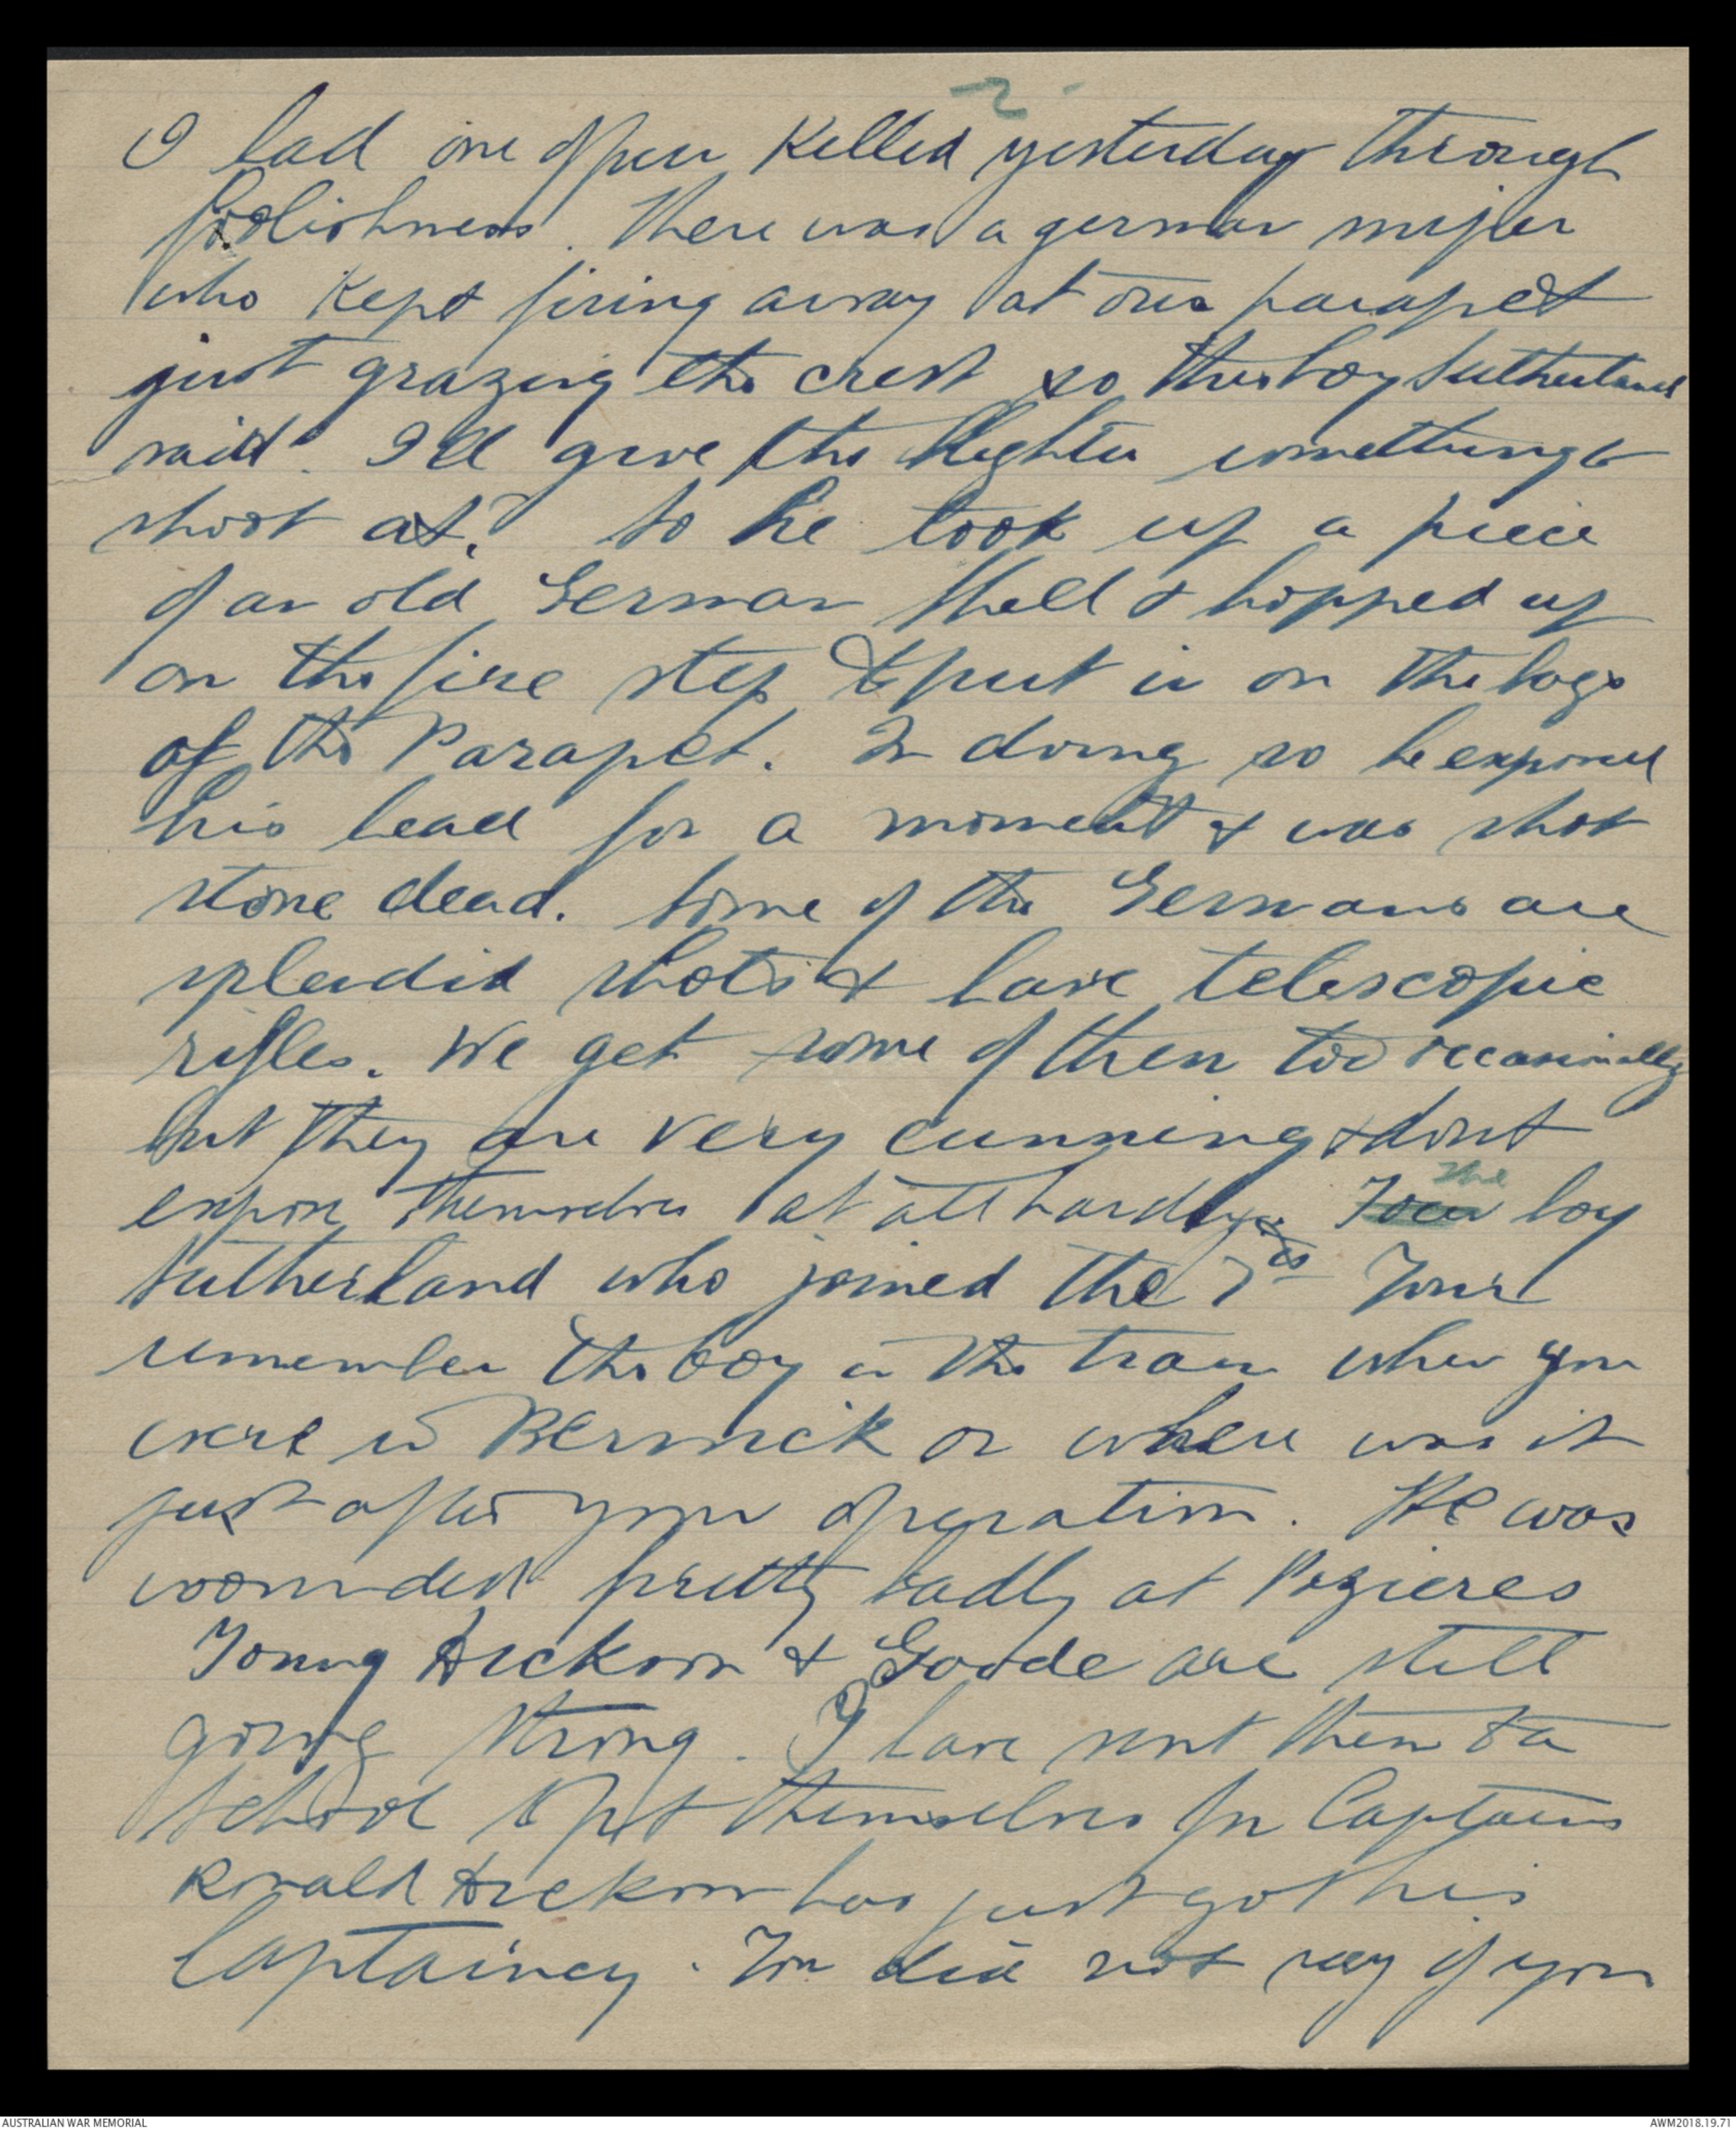 2.
I had one officer killed yesterday through
foolishness. There was a german sniper
who kept firing away at our parapet
just grazing the crest so this boy Sutherland
said "I'll give the blighter something to
shoot at." So he took up a piece
of an old German shell & hopped up
on the fire step to put it on the bags
of the Parapet. In doing so he exposed
his head for a moment & was shot
stone dead. Some of the Germans are
splendid shots & have telescopic
rifles. We get some of them too occasionally
but they are very cunning & dont
expose themselves at all hardly. The boy
Sutherland who joined the 7th You'll
remember the boy in the train when you
were in Berwick or where was it
just after your operation. He was
wounded pretty badly at Pozieres
Young & Goode are still
going strong. I have sent them to a
school to fit themselves for Captains
Ronald has just got his
Captaincy. You did not say if you
AUSTRALIAN WAR MEMORIAL
AWM2018.19.71